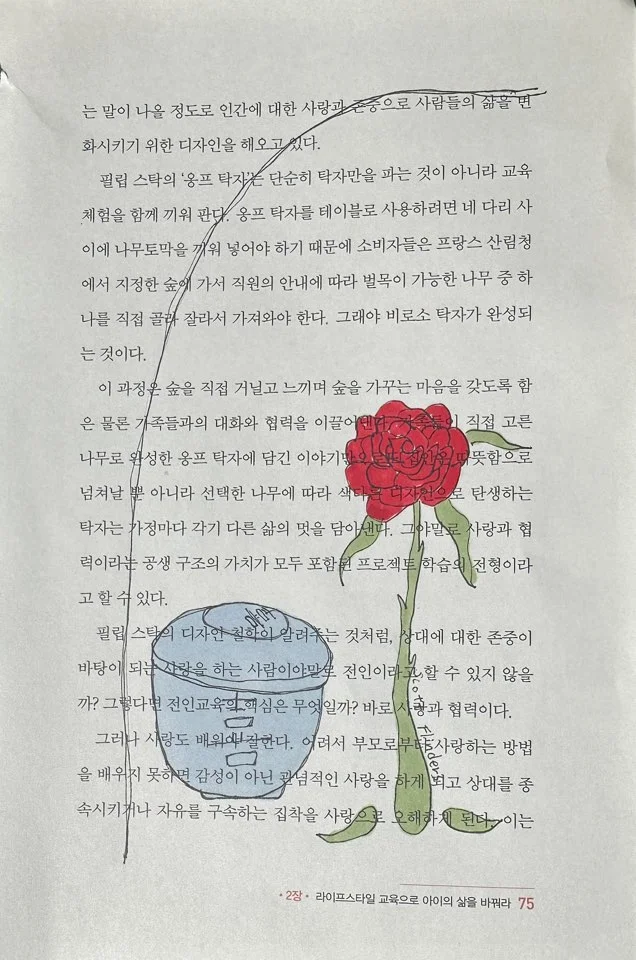 는 말이 나올 정도로 인간에 대한 사랑과 존중으로 사람들의 삶을 변
화시키기 위한 디자인을 해오고 있다.
필립 스탁의 ‘옹프 탁자’는 단순히 탁자만을 파는 것이 아니라 교육
체험을 함께 끼워 판다. 옹프 탁자를 테이블로 사용하려면 네 다리 사
이에 나무토막을 끼워 넣어야 하기 때문에 소비자들은 프랑스 산림청
에서 지정한 숲에 가서 직원의 안내에 따라 벌목이 가능한 나무 중 하
나를 직접 골라 잘라서 가져와야 한다. 그래야 비로소 탁자가 완성되
는 것이다.
이 과정은 숲을 직접 거닐고 느끼며 숲을 가꾸는 마음을 갖도록 함
은 물론 가족들과의 대화와 협력을 이끌어낸다. 가족들이 직접 고른
나무로 완성한 옹프 탁자에 담긴 이야기만으로도 집안은 따뜻함으로
넘쳐날 뿐 아니라 선택한 나무에 따라 색다른 디자인으로 탄생하는
탁자는 가정마다 각기 다른 삶의 멋을 담아낸다. 그야말로 사랑과 협
력이라는 공생 구조의 가치가 모두 포함된 프로젝트 학습의 전형이라
고 할 수 있다.
필립 스탁의 디자인 철학이 알려주는 것처럼, 상대에 대한 존중이
바탕이 되는 사랑을 하는 사람이야말로 전인이라고 할 수 있지 않을
까? 그렇다면 전인교육의 핵심은 무엇일까? 바로 사랑과 협력이다.
그러나 사랑도 배워야 잘한다. 어려서 부모로부터 사랑하는 방법
을 배우지 못하면 감성이 아닌 관념적인 사랑을 하게 되고 상대를 종
속시키거나 자유를 구속하는 집착을 사랑으로 오해하게 된다. 이는
• 2장 • 라이프스타일 교육으로 아이의 삶을 바꿔라 75